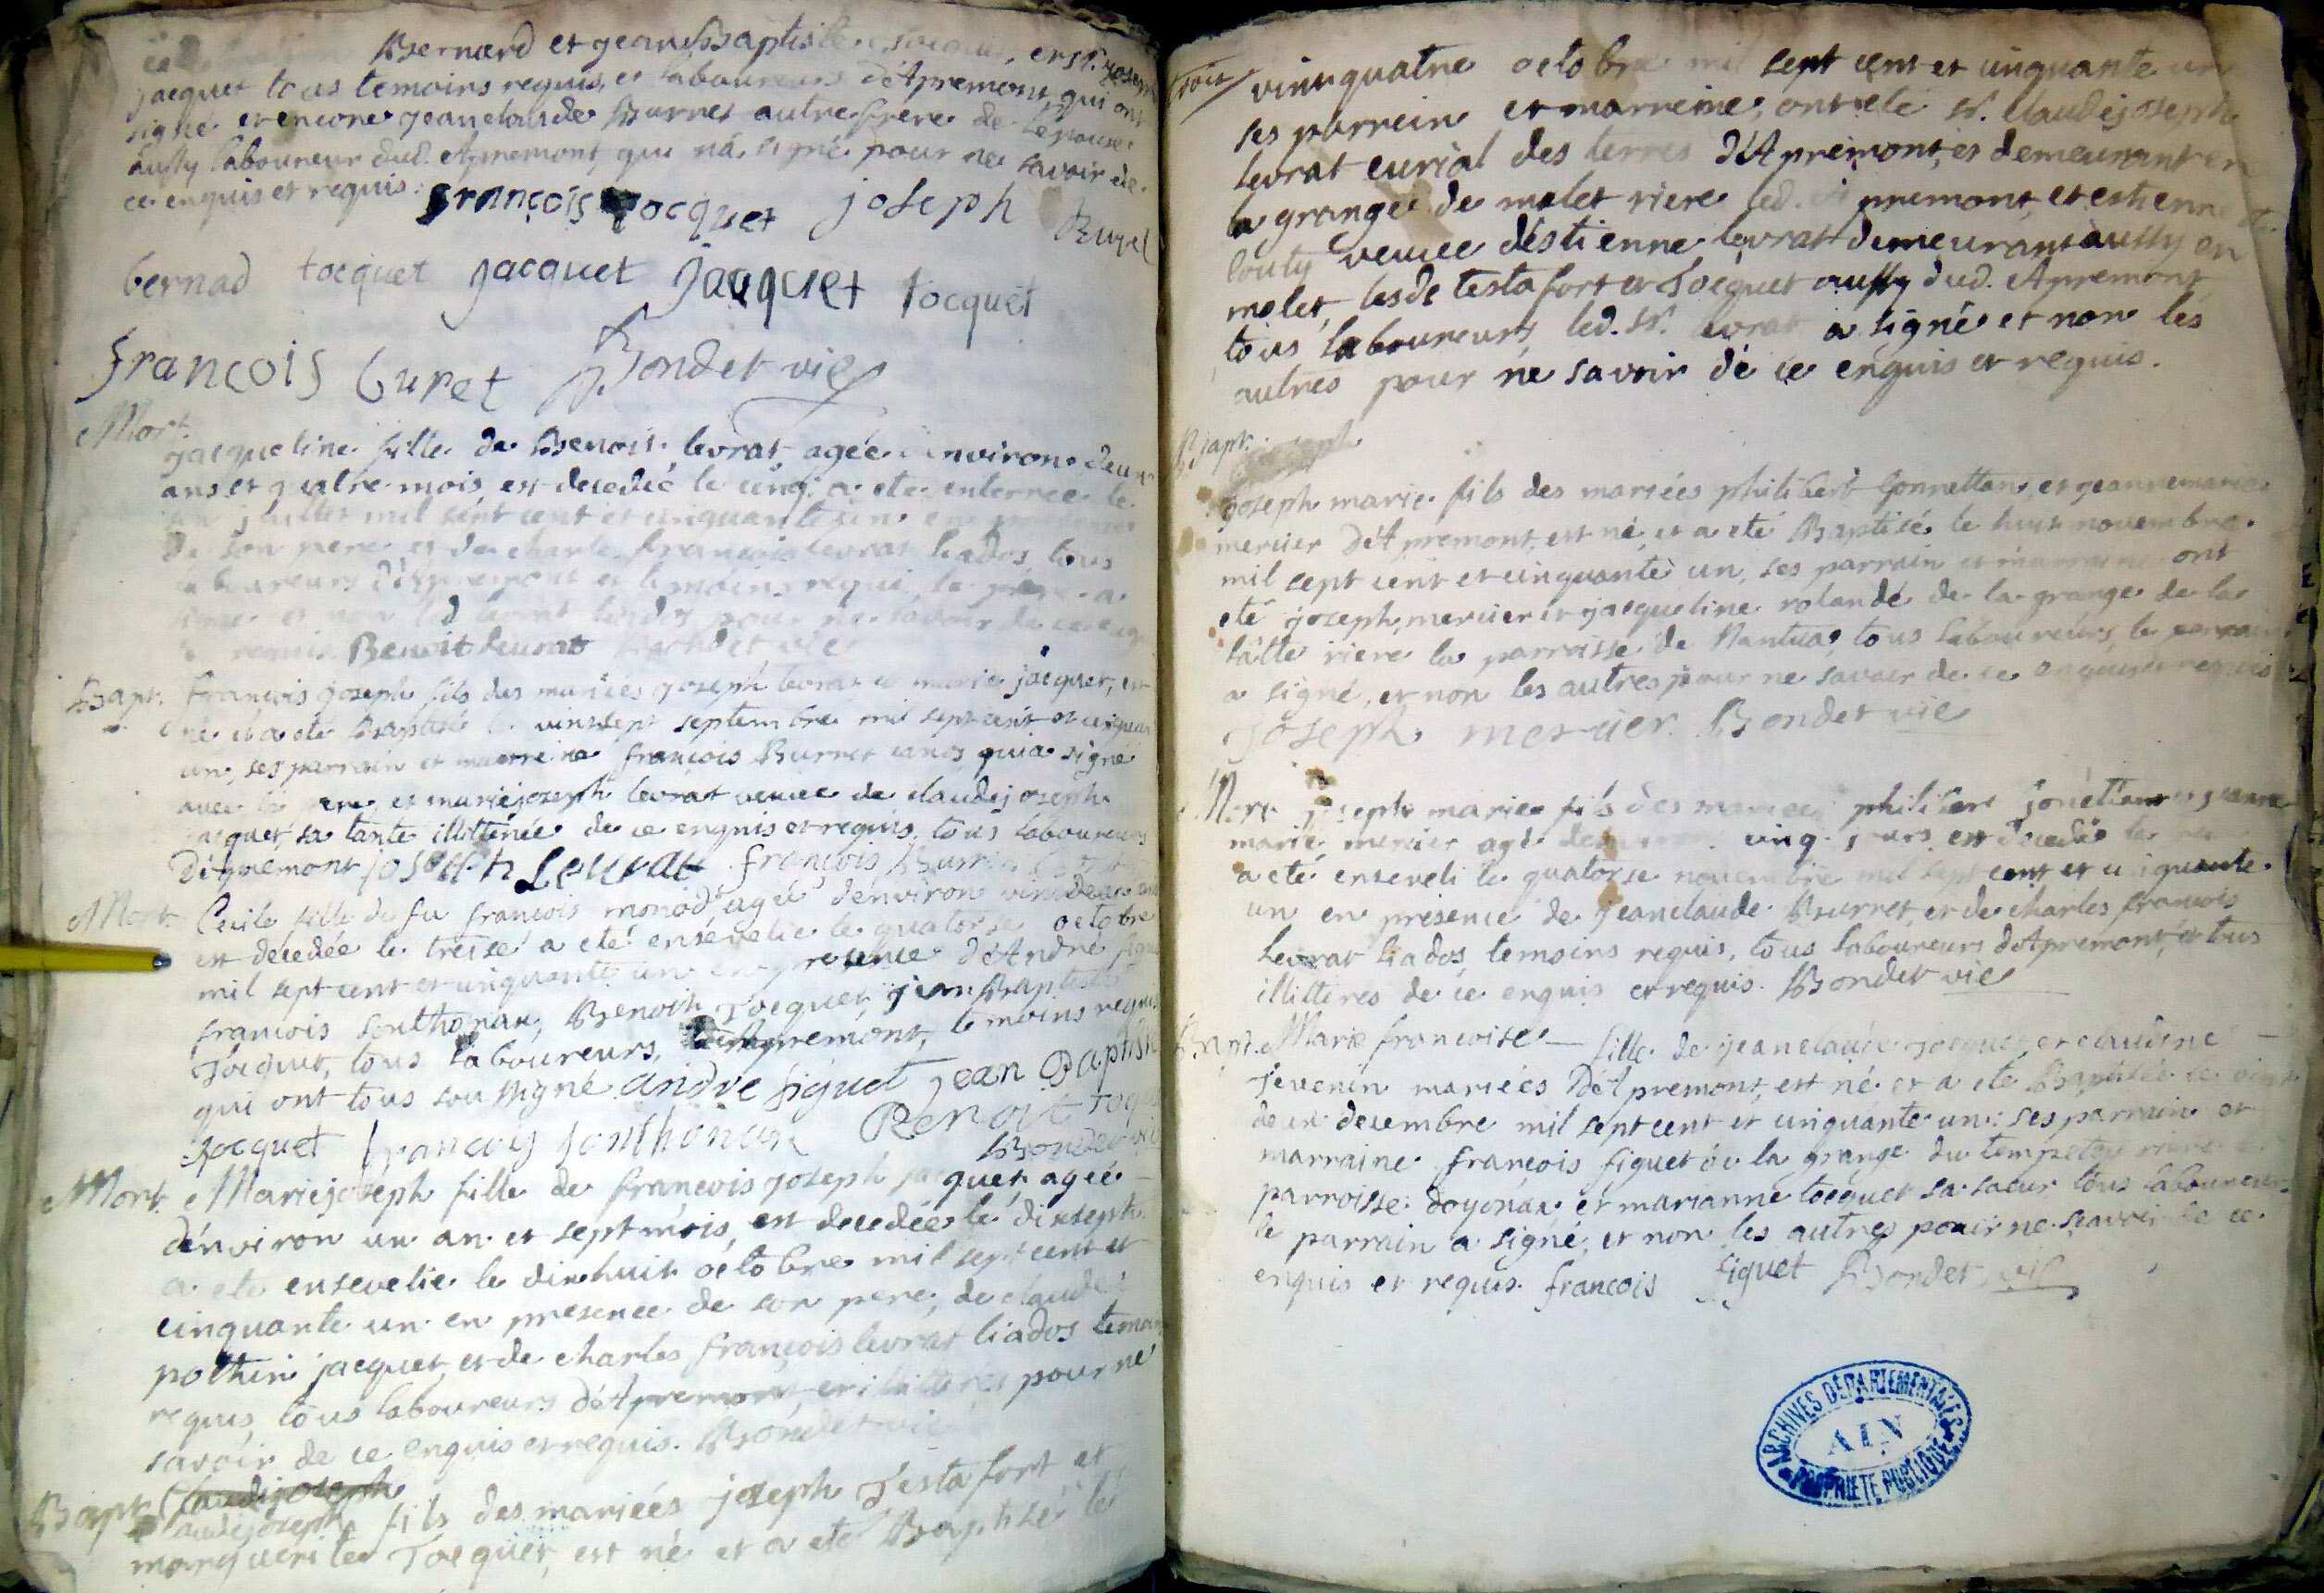 Bernard et Jean Baptiste
jacquet tous temoins requis, et laboureurs d'Apremont qui ont
signé et encore jeanclaude Burret autre frere de l'epouse
aussy laboureur dud. Apremont, qui n'a signé pour ne savoir de
ce enquis et requis. françois tocquet joseph Buret
bernad tocquet jacquet jacquet tocquet
françois buret Bondet vic
Mort.
jacqueline fille de Benoit levrat agée d'environ deux
ans et quatre mois, est decedée le cinq a ete enterree le
juillet mil sept cent et cinquante un en
de son pere et de charle francois levrat liados, tous
laboureurs d'Apremont et temoins requis, le pere a
signé et non led levrat liados pour ne savoir de ce
requis Benoit levrat Bondet vic
Bapt. francois joseph fils des mariés joseph levrat et marie jacquet, est
né et a ete Baptisé le vintsept septembre mil sept cent et cinquante
un, ses parrain et marreine françois Burret qui a signé
avec le pere, et mariejoseph levrat veuve de claudejoseph
jacquet, sa tante illitterée de ce enquis et requis. tous laboureurs
d'Apremont joseph Levrat françois Burret
Mort Cecile fille de fu francois monod agée d'environ
est decedée le treise a eté ensevelie le quatorse octobre
mil sept cent et cinquante un en presence d'André figuet
francois sonthonax, Benoit Tocquet, jean Baptiste
Tocquet, tous laboureurs, d'Apremont, temoins requis
qui ont tous soussigné andre figuet jean Baptiste
Tocquet francois sonthonax Benoit
Bondet vic
Mort. Mariejoseph fille de francois joseph jacquet, agée
d'environ un an et sept mois, est decedée le dixsept
a ete ensevelie le dixhuit octobre mil sept cent et
cinquante un en presence de son pere, de claude
pothin jacquet, et de charles françois levrat liados temoins
requis, tous laboureurs d'Apremont, et illitterés pour ne
savoir de ce enquis et requis. Bondet vic
Bapt. Claudejoseph
Claudejoseph fils des mariées joseph Testafort et
marguerite Tocquet, est né et a eté Baptisé le
vint quatre octobre mil sept cent et cinquante un
ses parrein et marreine, ont eté sr. claudejoseph
levrat curial des terres d'Apremont, et demeurant en
la grange de malet riere led. Apremont, et estiennette
louty veuve d'estienne levrat demeurant aussy en
molet, lesd. testafort et Tocquet aussy dud. Apremont
tous laboureurs, led. sr. levrat a signé et non les
autres pour ne savoir de ce enquis et requis.
Bapt.
joseph marie fils des mariées philibert Gonnettan, et jeanne marie
mercier d'Apremont, est né, et a eté Baptisé le huit novembre
mil sept cent et cinquante un, ses parrain et marraine ont
eté joseph mercier et jacqueline rolande de la grange de la
latte riere la parroisse de Nantua, tous laboureurs, le parrain
a signé, et non les autres pour ne savoir de ce enquis et requis
Joseph mercier. Bondet vic
Mort joseph marie fils des mariées philibert jonettan et jeanne
marie mercier agé de cinq jours est decedé le
a eté enseveli le quatorse novembre mil sept cent et cinquante
un en presence de jeanclaude Burret, et de charles francois
levrat liados, temoins requis, tous laboureurs d'Apremont, et tous
illitteres de ce enquis et requis. Bondet vic
Bapt. Marie francoise — fille de jeanclaude jocquet et claudine —
Tevenin mariées d'Apremont, est né et a ete Baptisée le vint
deux decembre mil sept cent et cinquante un: ses parrain et
marraine françois figuet de la grange du tempetey riere la
parroisse doyonax et marianne tocquet sa sœur tous laboureurs
le parrain a signé, et non les autres pour ne scavoir de ce
enquis et requis. francois figuet Bondet vic
ARCHIVES DÉPARTEMENTALES
AIN
PROPRIÉTÉ PUBLIQUE